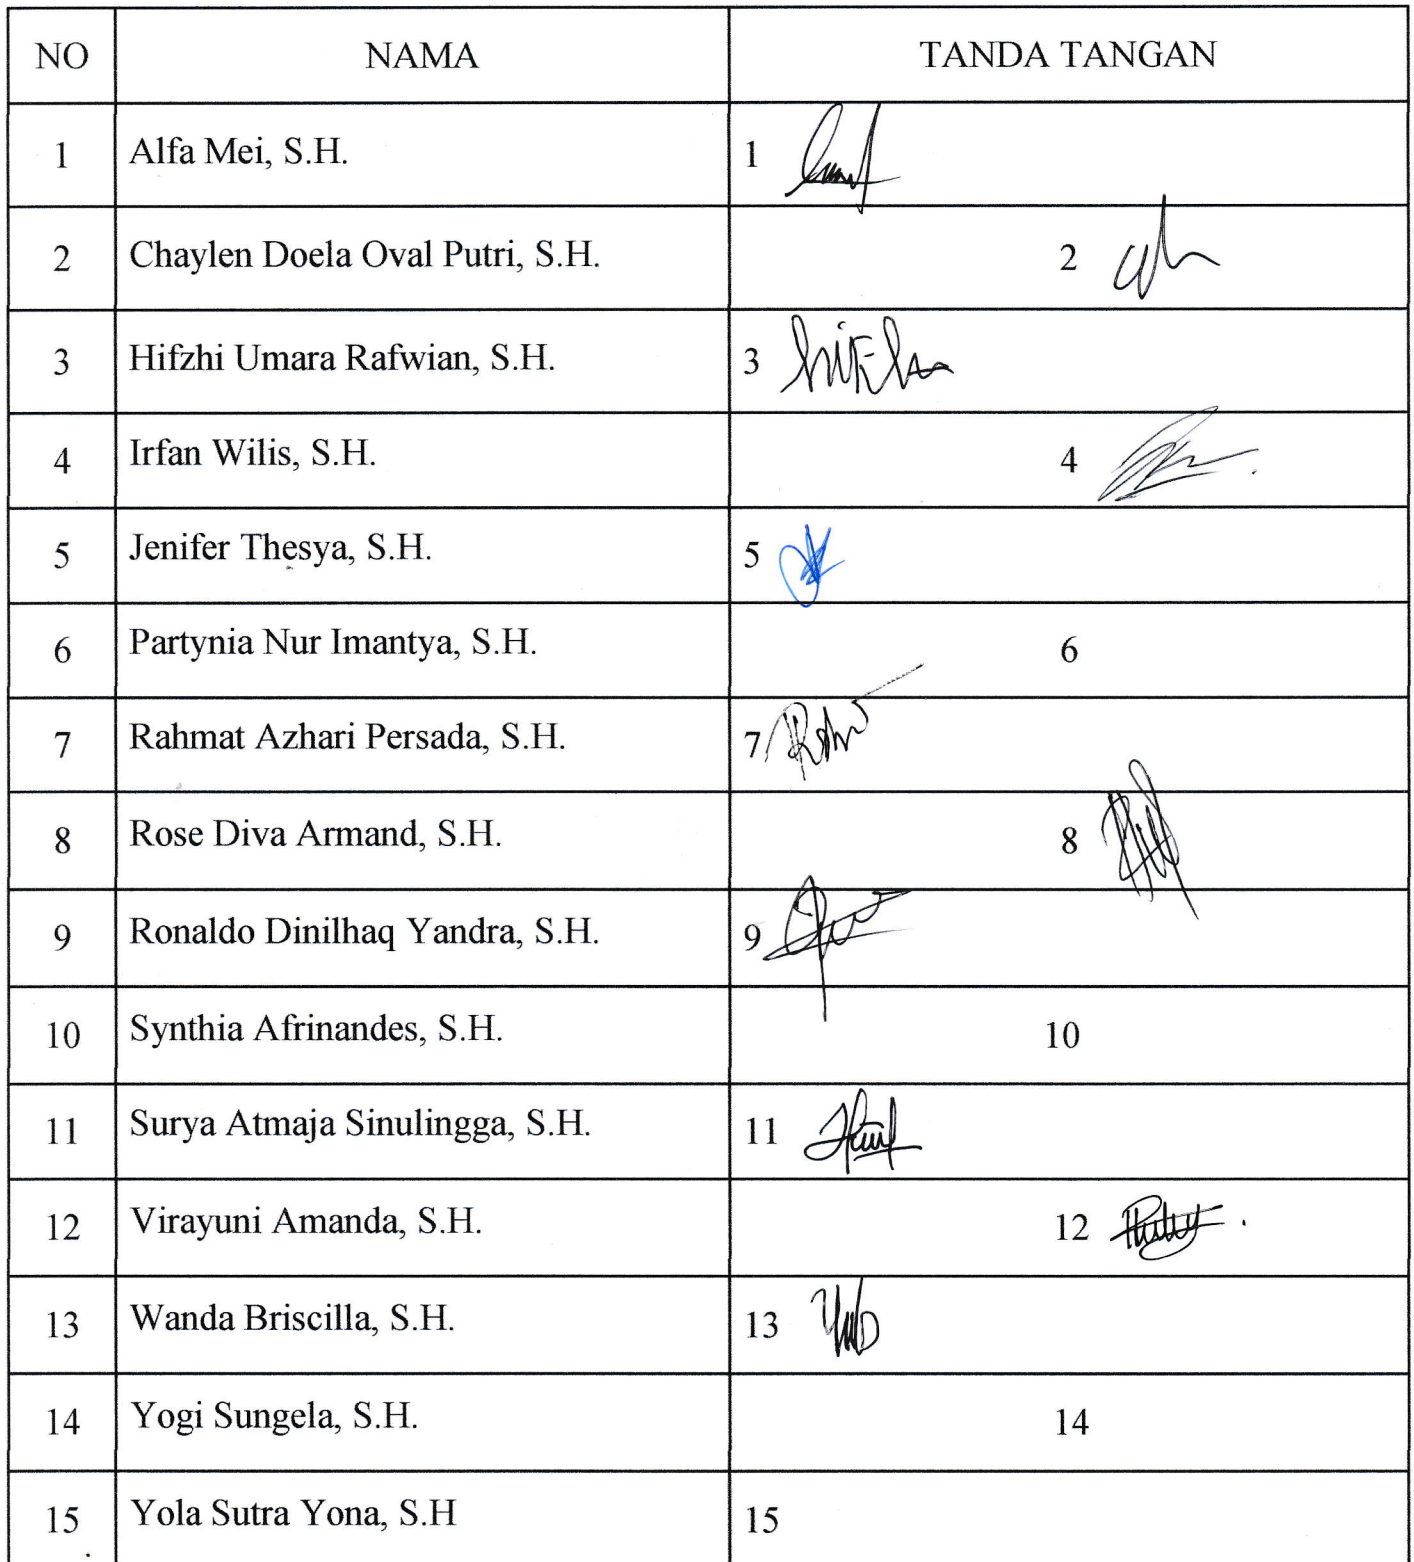 NO NAMA TANDA TANGAN
1 Alfa Mei, S.H. 1
2 Chaylen Doela Oval Putri, S.H. 2
3 Hifzhi Umara Rafwian, S.H. 3
4 Irfan Wilis, S.H. 4
5 Jenifer Thesya, S.H. 5
6 Partynia Nur Imantya, S.H. 6
7 Rahmat Azhari Persada, S.H. 7
8 Rose Diva Armand, S.H. 8
9 Ronaldo Dinilhaq Yandra, S.H. 9
10 Synthia Afrinandes, S.H. 10
11 Surya Atmaja Sinulingga, S.H. 11
12 Virayuni Amanda, S.H. 12
13 Wanda Briscilla, S.H. 13
14 Yogi Sungela, S.H. 14
15 Yola Sutra Yona, S.H 15